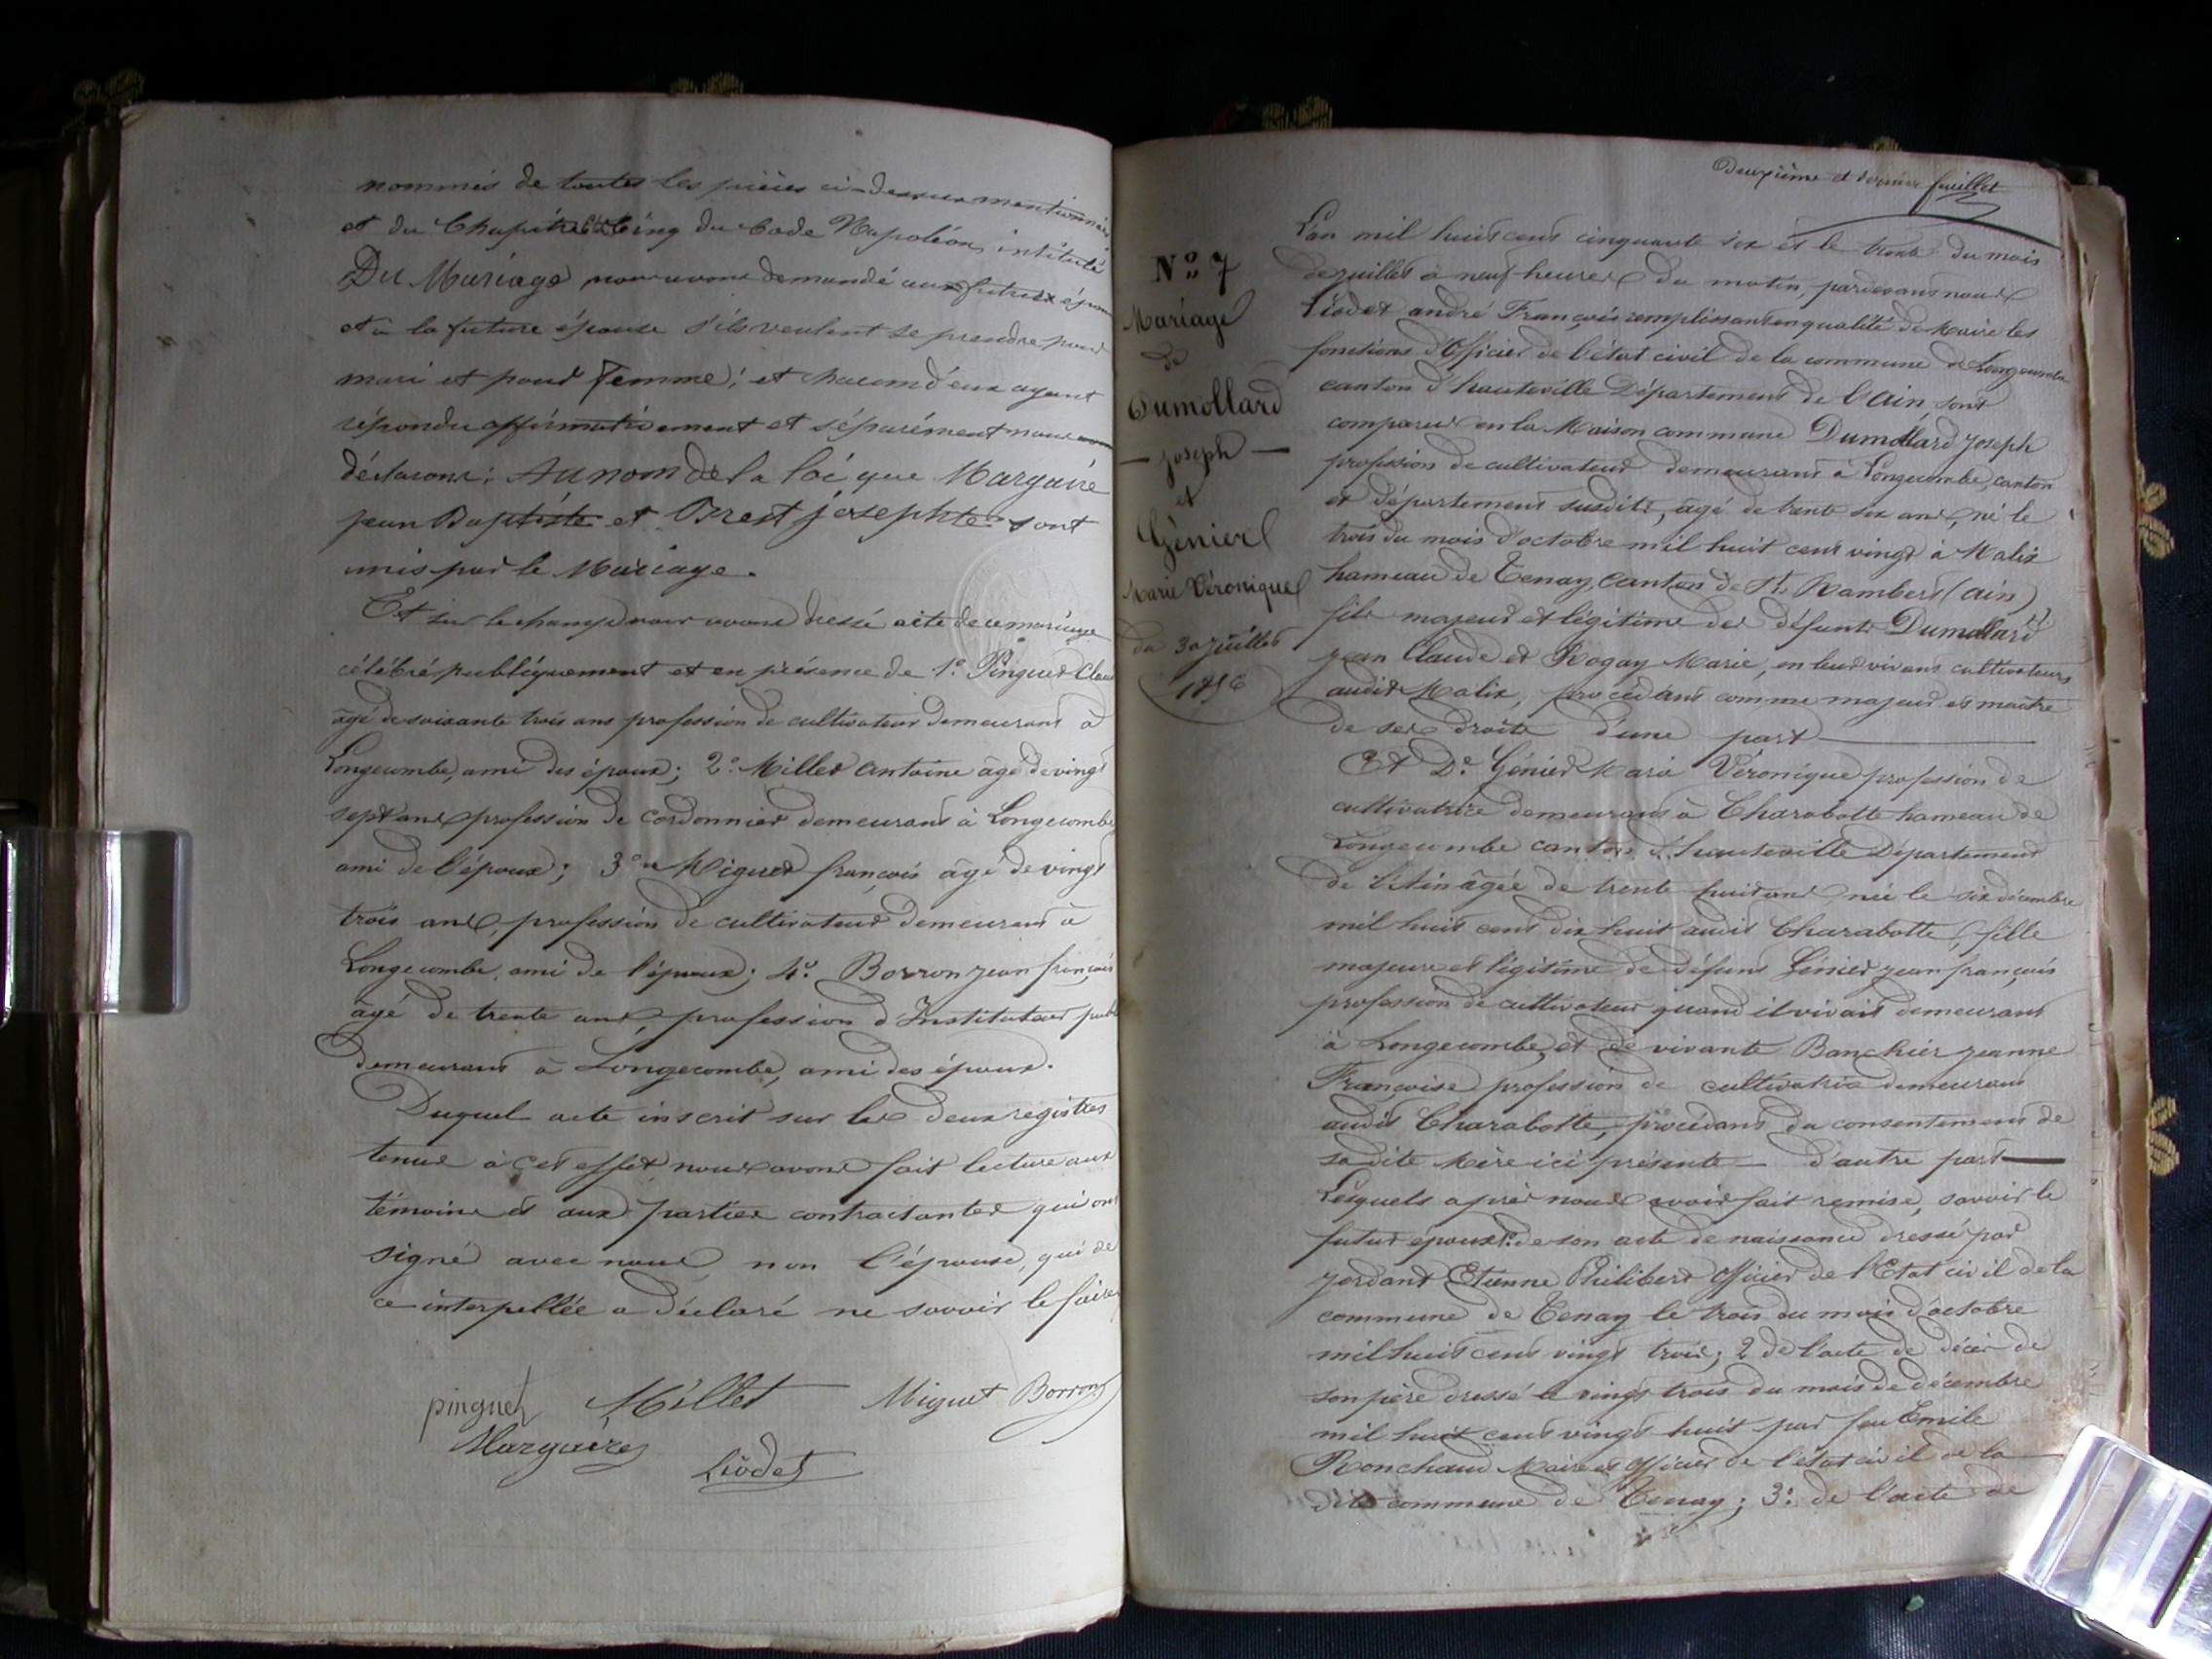 nommés de toutes les pièces ci-dessus mentionnées
et du Chapitre Cinq du Code Napoléon, intitulé
Du Mariage nous avons demandé aux futurs époux
et à la future épouse s'ils veulent se prendre pour
mari et pour femme; et chacun d'eux ayant
répondu affirmativement et séparément nous avons
déclarons: Au nom de la loi que Margaire
jean Baptiste et Brest josephte sont
unis par le Mariage.
Et sur le champ nous avons dressé acte de ce mariage
célébré publiquement et en présence de 1.° Pinguet Claude
âgé de soixante trois ans profession de cultivateur demeurant à
Longecombe, ami des époux; 2.° Millet antoine âgé de vingt
sept ans profession de cordonnier demeurant à Longecombe
ami de l'époux; 3.° Miguet françois âgé de vingt
trois ans, profession de cultivateur demeurant à
Longecombe, ami de l'époux; 4.° Borron jean françois
âgé de trente ans, profession d'Instituteur publ
demeurant à Longecombe, ami des époux.
Duquel acte inscrit sur les deux registres
tenus à cet effet nous avons fait lecture aux
témoins et aux parties contractantes qui ont
signé avec nous non l'épouse, qui de
ce interpellée a déclaré ne savoir le faire
pinguet Millet Miguet Borron
Margaire
Liodet
Deuxième et dernier feuillet
N.° 7
Mariage
de
Dumollard
— joseph —
et
Génier
Marie Véronique
du 30 juillet
1856
L'an mil huit cent cinquante six et le trente du mois
de juillet à neuf heures du matin, pardevant nous
Liodet andré François remplissant en qualité de Maire les
fonctions d'Officier de l'état civil de la commune de Longecombe
canton d'hauteville Département de l'Ain, sont
comparus en la Maison commune Dumollard joseph
profession de cultivateur demeurant à Longecombe, canton
et département susdits, âgé de trente six ans, né le
trois du mois d'octobre mil huit cent vingt à Malix
hameau de Tenay, Canton de St. Rambert (ain)
fils majeur et légitime des défunts Dumollard
jean Claude et Rogay Marie, en leur vivant cultivateurs
audit Malix, procédant comme majeur et maître
de ses droits d'une part
Et De. Génier Marie Véronique profession de
cultivatrice demeurant à Charabotte hameau de
Longecombe canton d'hauteville Département
de l'Ain âgée de trente huit ans née le six décembre
mil huit cent dix huit audit Charabotte, fille
majeure et légitime de défunt Génier jean françois
profession de cultivateur quand il vivait demeurant
à Longecombe, et de vivante Banchier jeanne
Françoise profession de cultivatrice demeurant
audit Charabotte, procédant du consentement de
sadite Mère ici présente — d'autre part —
Lesquels après nous avoir fait remise, savoir le
futur époux 1.° de son acte de naissance dressé par
jordant Etienne Philibert Officier de l'Etat civil de la
commune de Tenay le trois du mois d'octobre
mil huit cent vingt trois; 2 de l'acte de décès de
son père dressé le vingt trois du mois de décembre
mil huit cent vingt huit par feu Emile
Ronchaud Maire et Officier de l'état civil de la
dite commune de Tenay; 3.° de l'acte de